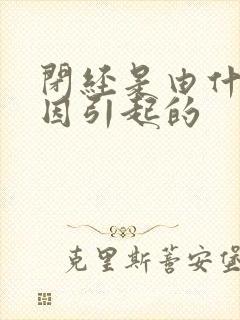 閉經是由什
因引起的
克里斯蒂安堡